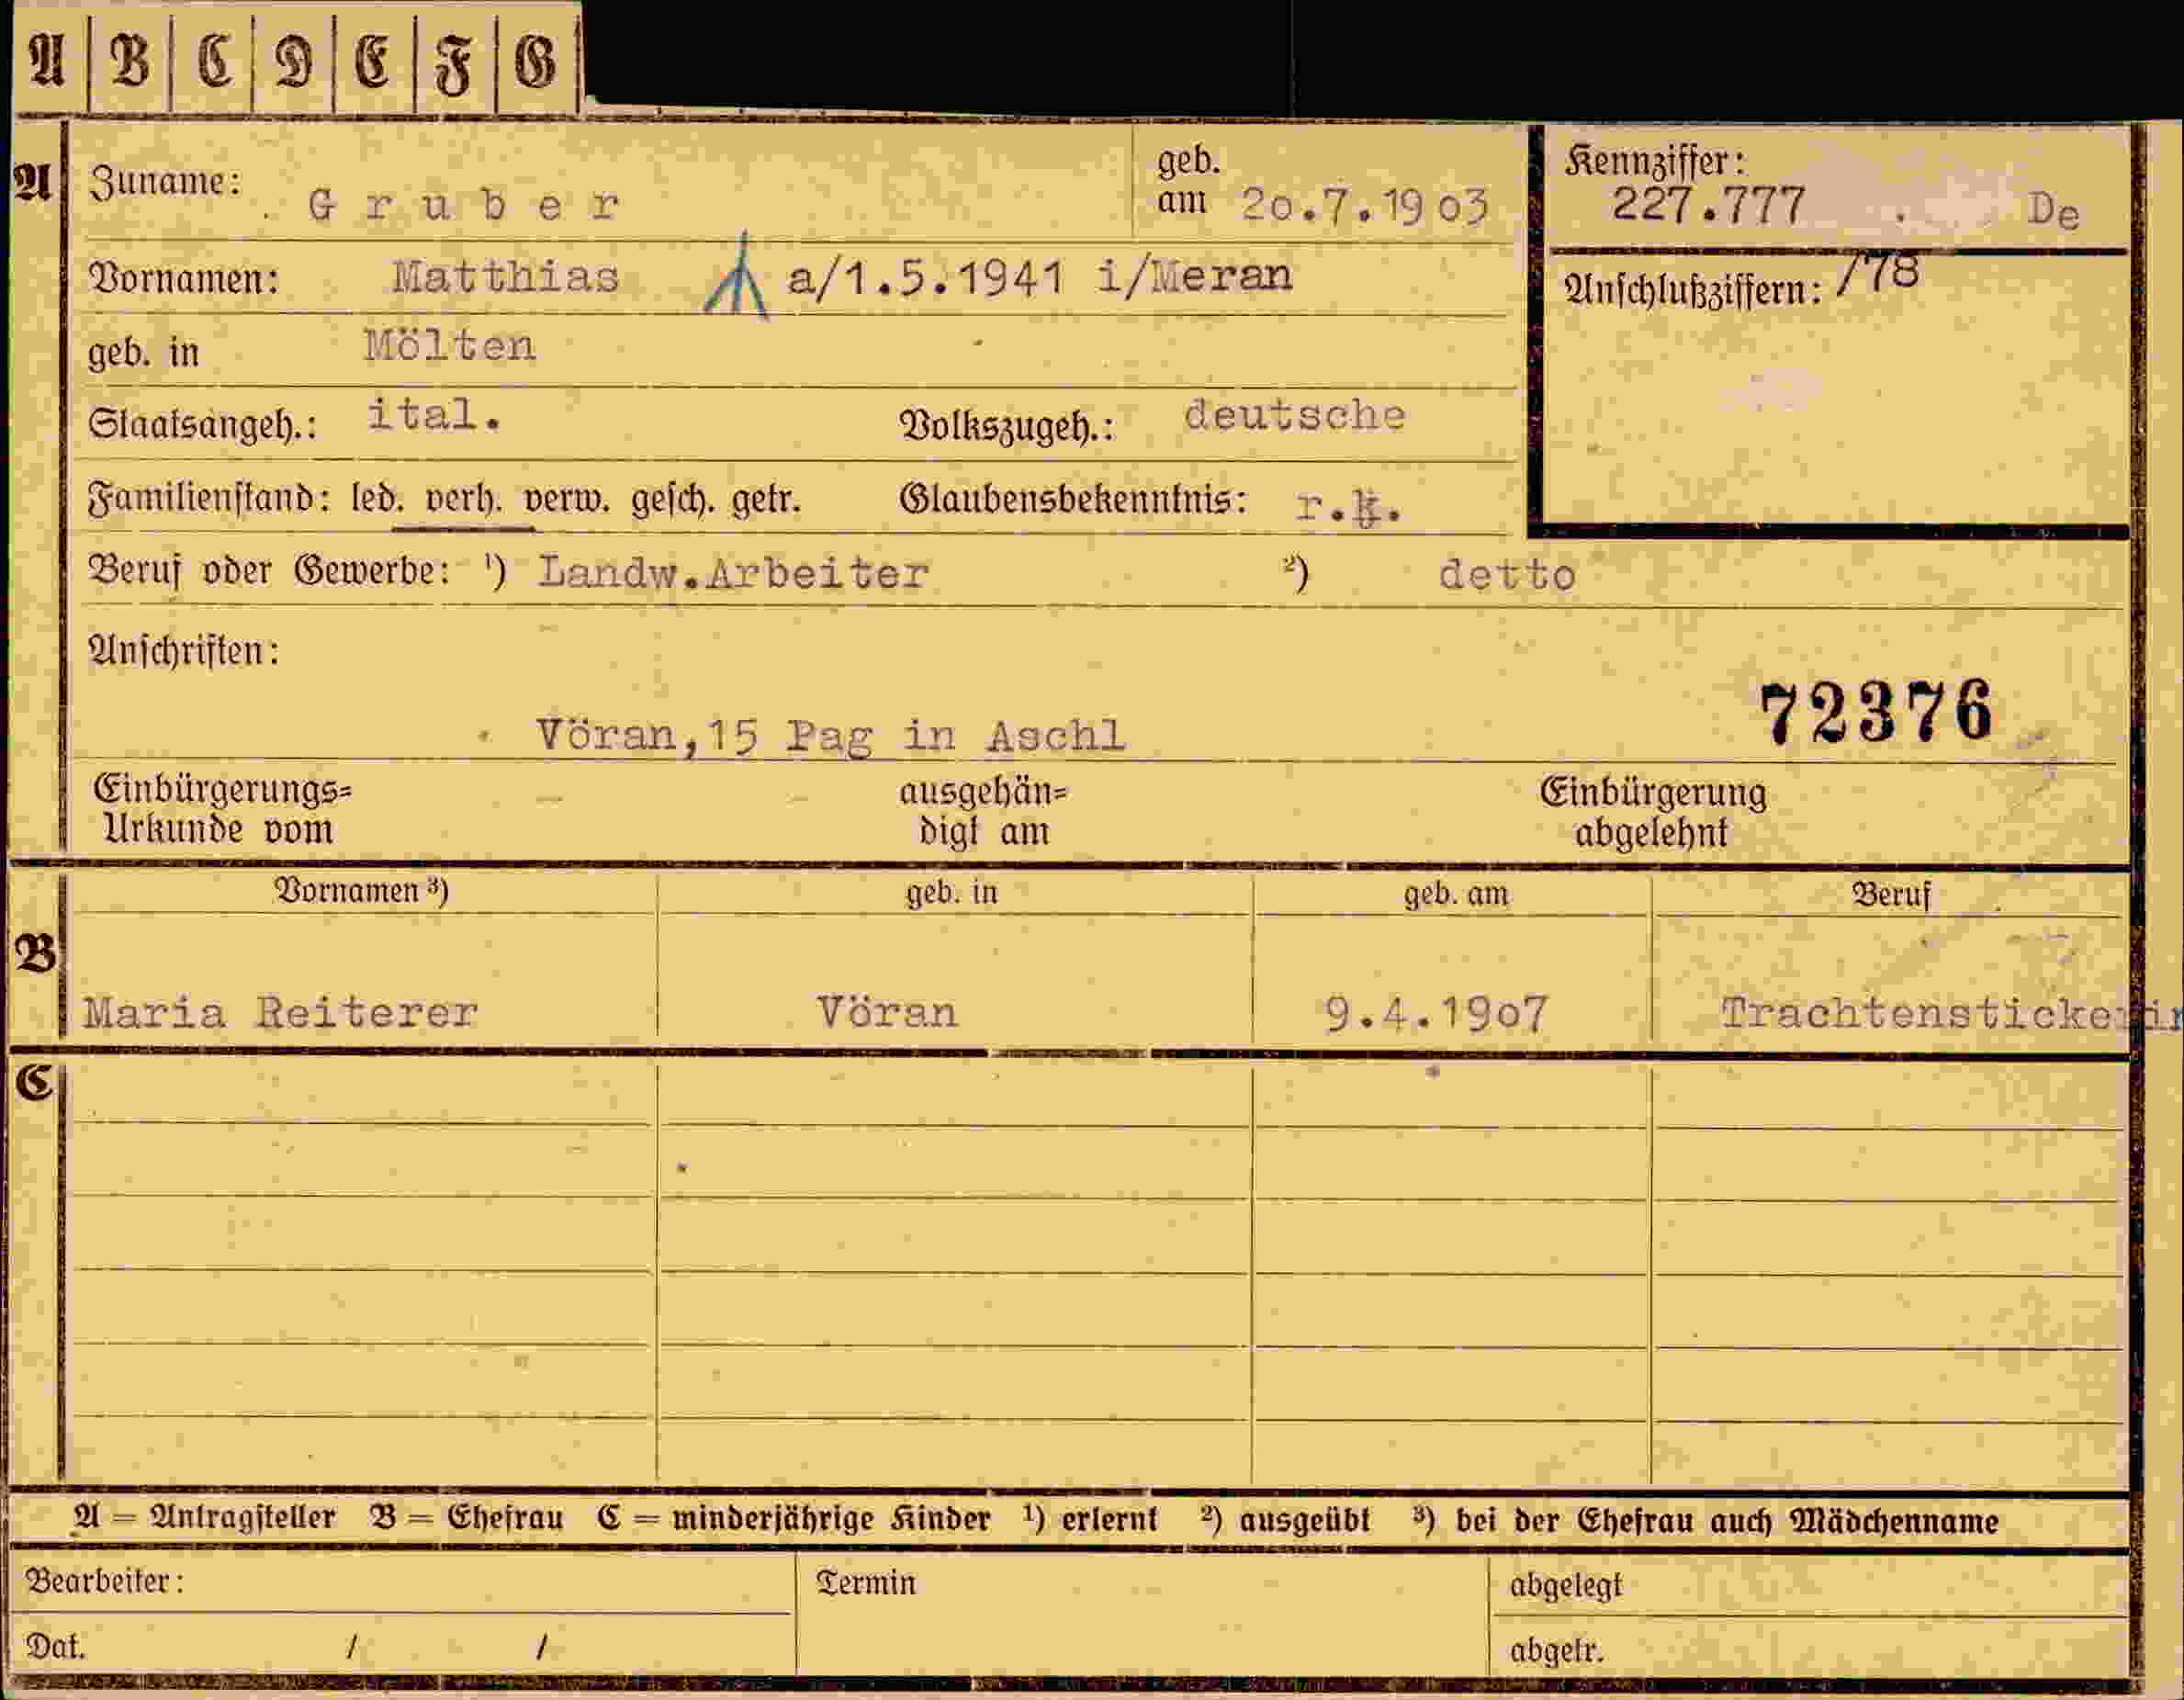 A B C D E F G
A Zuname: Gruber geb. am 20.7.1903 Kennziffer: 227.777 De
Vornamen: Matthias a/1.5.1941 i/Meran Anschlußziffern: /78
geb. in Mölten
Staatsangeh.: ital. Volkszugeh.: deutsche
Familienstand: led. verh. verw. gesch. getr. Glaubensbekenntnis: r.k.
Beruf oder Gewerbe: ¹) Landw.Arbeiter ²) detto
Anschriften:
72376
Vöran,15 Pag in Aschl
Einbürgerungs= ausgehän= Einbürgerung
Urkunde vom digt am abgelehnt
Vornamen ³) geb. in geb. am Beruf
B
Maria Reiterer Vöran 9.4.1907 Trachtenstickerin
C
A = Antragsteller B = Ehefrau C = minderjährige Kinder ¹) erlernt ²) ausgeübt ³) bei der Ehefrau auch Mädchenname
Bearbeiter: Termin abgelegt
Dat. / / abgetr.